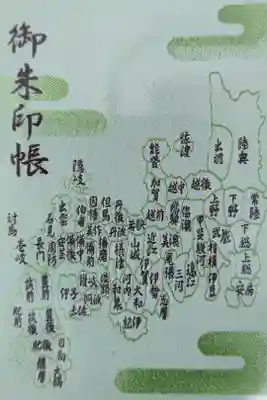 御朱印帳
陸奥
出羽
佐渡
越後
越中
能登
加賀
越前
常陸
下野
上野
下総
上総
安房
武蔵
相模
伊豆
甲斐
駿河
信濃
遠江
三河
飛騨
美濃
尾張
志摩
伊勢
伊賀
近江
若狭
山城
大和
河内
和泉
紀伊
摂津
丹波
丹後
但馬
播磨
淡路
因幡
美作
備前
伯耆
備中
備後
隠岐
出雲
安芸
石見
周防
長門
讃岐
阿波
土佐
伊予
対馬
壱岐
筑前
筑後
豊前
豊後
肥前
肥後
日向
大隅
薩摩